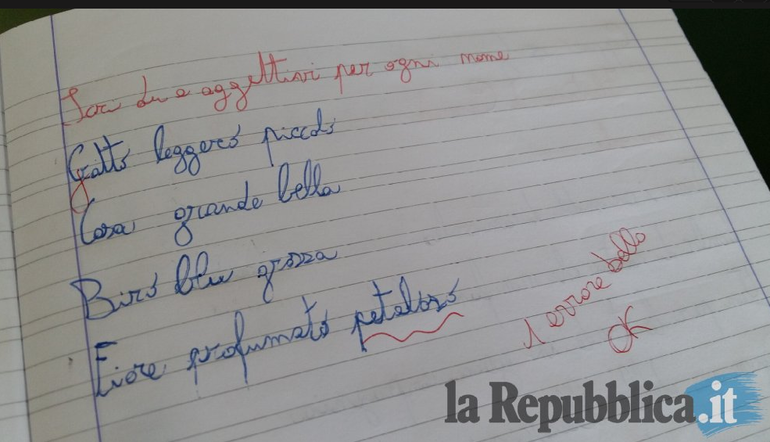 Scrivi due aggettivi per ogni nome
Gatto leggero piccolo
Casa grande bella
Biro blu grossa
Fiore profumato petaloso
1 errore bello
OK
la Repubblica.it